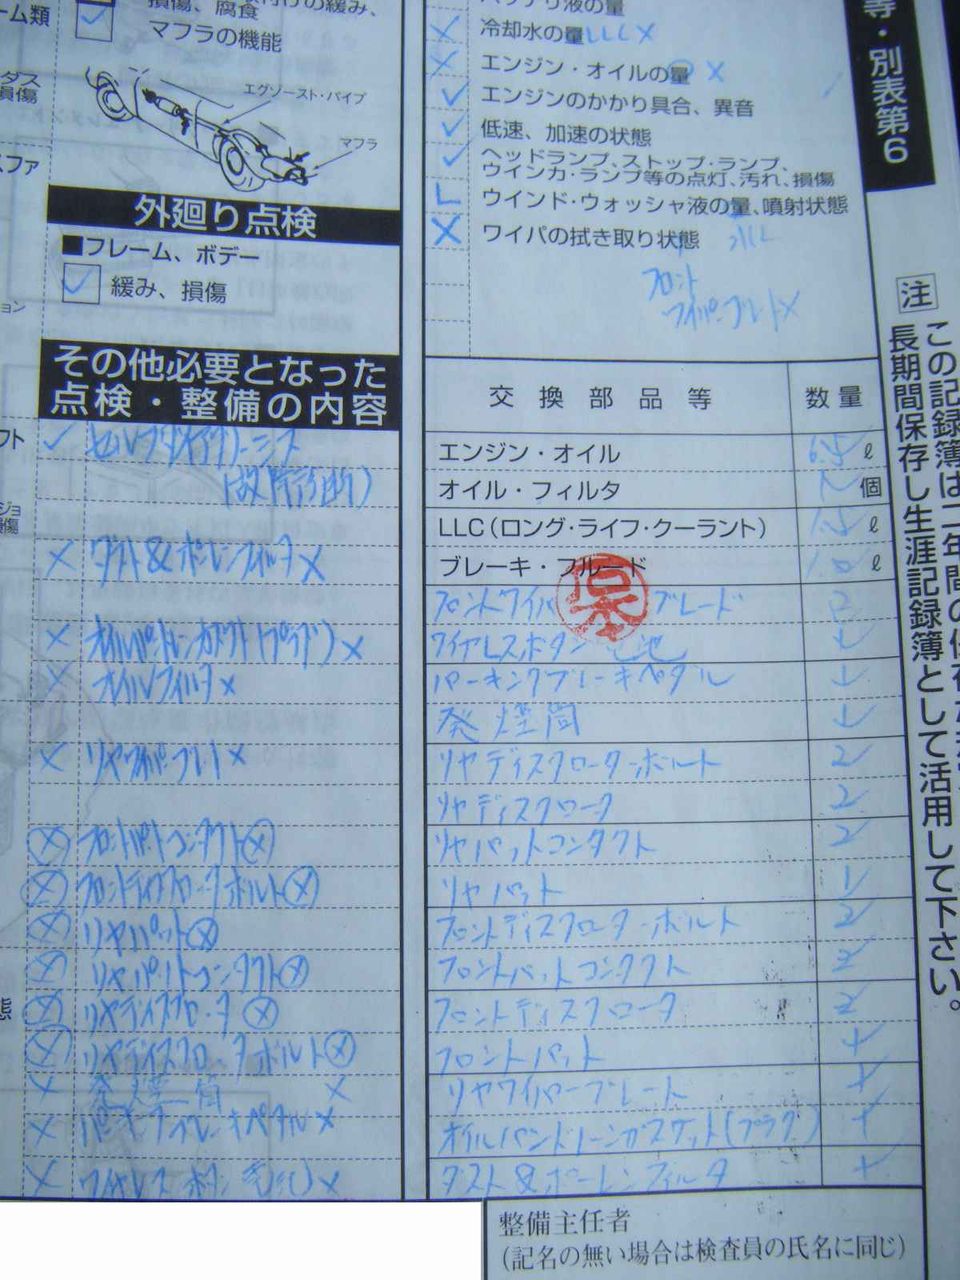 損傷、腐食
マフラの機能
ーム類
ダス
損傷
エグゾースト・パイプ
マフラ
スファ
外廻り点検
■フレーム、ボデー
緩み、損傷
その他必要となった
点検・整備の内容
(故障診断)
ダスト&ポーレンフィルタ
オイルパンドレンガスケット(プラグ)
オイルフィルタ
リヤワイパーブレード
フロントパットコンタクト
フロントディスクロータボルト
リヤパット
リヤパットコンタクト
リヤディスクロータ
リヤディスクロータボルト
発煙筒
パーキングブレーキペダル
ワイヤレスボタン電池
冷却水の量LLC
エンジン・オイルの量
エンジンのかかり具合、異音
低速、加速の状態
ヘッドランプ、ストップ・ランプ、
ウインカ・ランプ等の点灯、汚れ、損傷
ウインド・ウォッシャ液の量、噴射状態
ワイパの拭き取り状態
フロント
ワイパーブレード
交換部品等 数量
エンジン・オイル 6.5 ℓ
オイル・フィルタ 個
LLC(ロング・ライフ・クーラント) 1.5 ℓ
ブレーキ・フルード 1.0 ℓ
フロントワイパーブレード 2
ワイヤレスボタン電池
パーキングブレーキペダル
発煙筒
リヤディスクロータボルト 2
リヤディスクロータ 2
リヤパットコンタクト 2
リヤパット 1
フロントディスクロータボルト 2
フロントパットコンタクト 2
フロントディスクロータ 2
フロントパット
リヤワイパーブレード
オイルパンドレーンガスケット(プラグ)
ダスト&ポーレンフィルタ
整備主任者
(記名の無い場合は検査員の氏名に同じ)
等・別表第6
注
この記録簿は二年間の保存
長期間保存し生涯記録簿として活用して下さい。